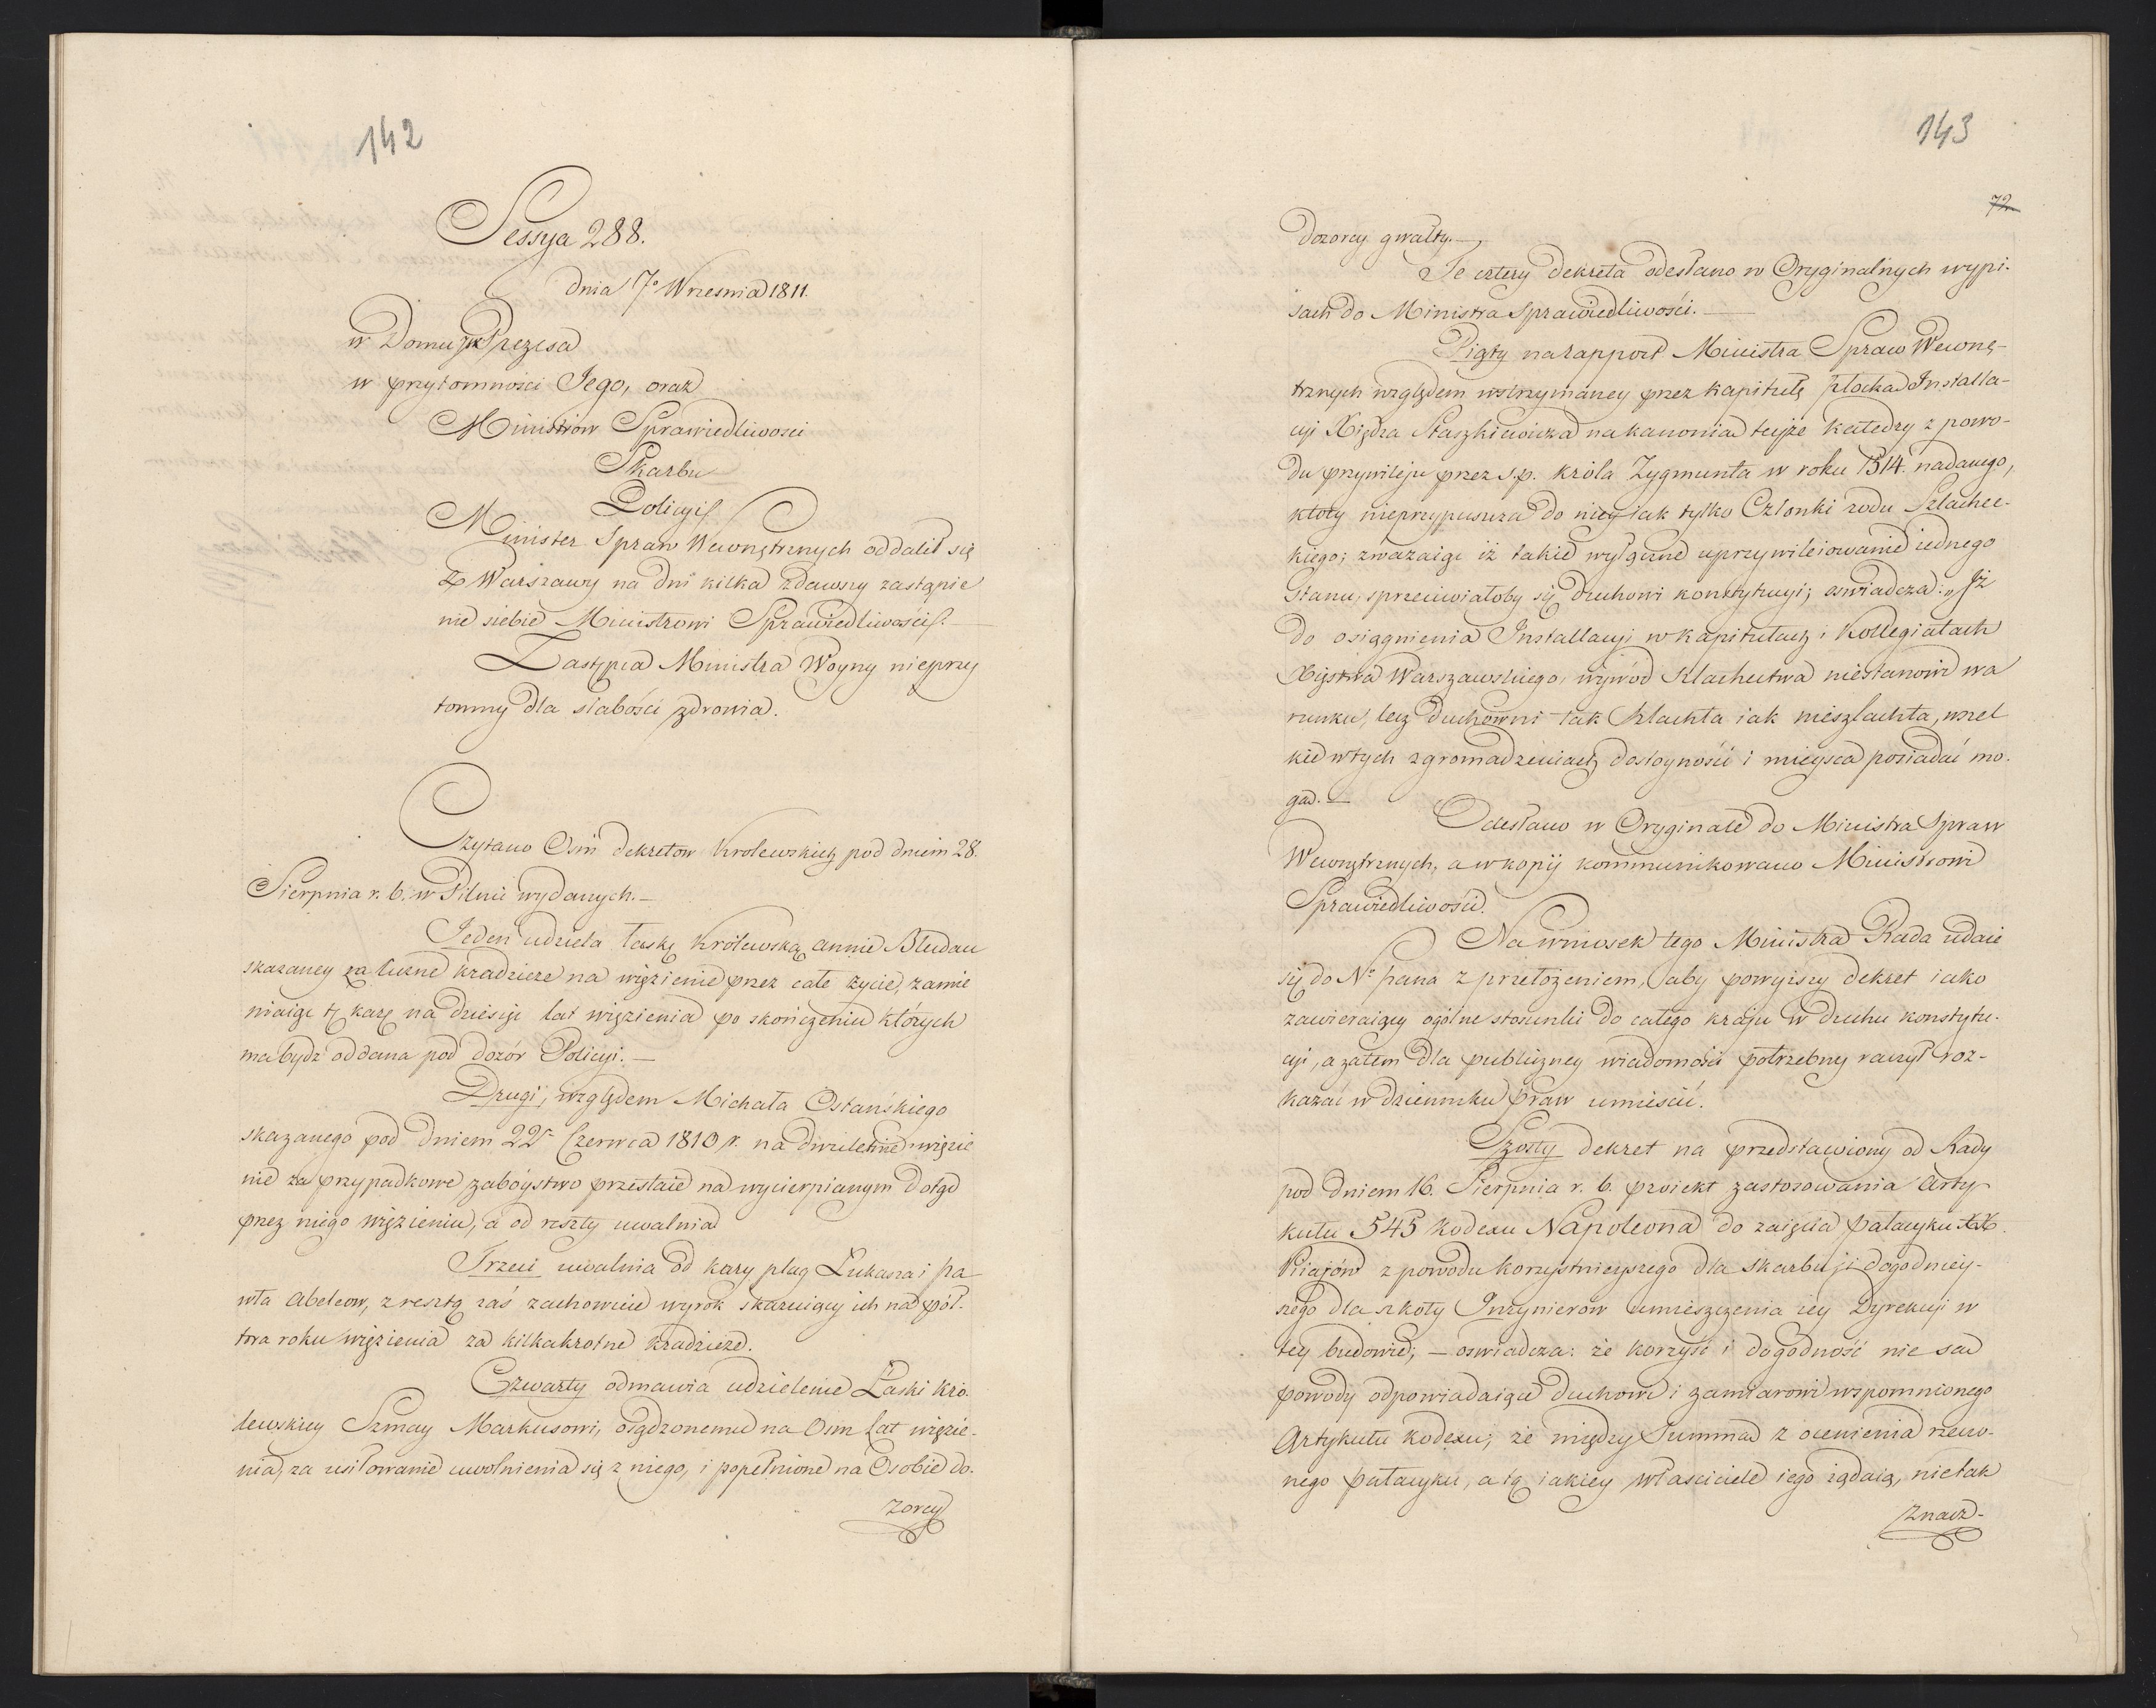 142
Sessya 288.
dnia 7º Wrzesnia 1811.
w Domu JW Prezesa
w przytomności Jego, oraz
Ministrow Sprawiedliwosci
Skarbu
Policyi
Minister Spraw Wewnętrznych oddalił się
z Warszawy na dni kilka zdawszy zastąpie
nie siebie Ministrowi Sprawiedliwości. —
Zastępca Ministra Woyny nieprzy
tomny dla słabości zdrowia.
Czytano Osm dekretow Krolewskich pod dniem 28.
Sierpnia r. b. w Pilnic wydanych. —
Jeden udziela łaskę Królewską Annie Bludau
skazaney za liczne kradzieże na więzienie przez całe życie, zamie
niaiąc tę karę na dziesięć lat więzienia po skończeniu których
ma bydź oddana pod dozór Policyi. —
Drugi, względem Michała Ostańskiego
skazanego pod dniem 22. Czerwca 1810 r. na dwuletnie więzie
nie za przypadkowe zabóystwo przestaie na wycierpianym dotąd
przez niego więzieniu, a od reszty uwalnia
Trzeci uwalnia od kary plag Łukasza i Pa
wła Abelow, z resztą zaś zachowuie wyrok skazuiący ich na pół-
tora roku więzienia za kilkakrotne kradzieże.
Czwarty odmawia udzielenie Łaski Kró-
lewskiey Szmay Markusowi, osądzonemu na Osm Lat więzie-
nia, za usiłowanie uwolnienia się z niego, i popełnione na Osobie do-
zorcy
143
72
dozorcy gwałty. —
Te cztery dekreta odesłano w Oryginalnych wypi-
sach do Ministra Sprawiedliwości. —
Piąty na rapport Ministra Spraw Wewnę-
trznych względem wstrzymaney przez Kapitułę płocką Installa-
cyi Xiędza Staszkiewicza na kanonią teyże Katedry z powo-
du przywileju przez s.p. króla Zygmunta w roku 1514. nadanego,
który nieprzypuszcza do niey iak tylko Członki rodu Szlachec-
kiego; zważaiąc iż takie wyłączne uprzywileiowanie iednego
Stanu, sprzeciwiałoby się duchowi konstytucyi; oswiadcza: „Iż
do osiągnienia Installacyi w kapitułach i Kollegiatach
Xięstwa Warszawskiego, wywód szlachectwa niestanowi wa
runku, lecz duchowni tak szlachta iak nieszlachta, wszel
kie w tych zgromadzeniach dostoyności i mieysca posiadać mo-
gą. —
Odesłano w Oryginale do Ministra Spraw
Wewnętrznych, a w kopij kommunikowano Ministrowi
Sprawiedliwości.
Na wniosek tego Ministra Rada udaie
się do No Pana z przełożeniem, aby powyższy dekret iako
zawieraiący ogólne stosunki do całego kraju w duchu konstytu-
cyi, a zatem dla publiczney wiadomości potrzebny raczył roz-
kazać w dzienniku praw umieścić.
Szósty dekret na przedstawiony od Rady
pod dniem 16. Sierpnia r. b. proiekt zastosowania Arty-
kułu 545 kodexu Napoleona do zaięcia pałacyku XX.
Piiarów z powodu korzystnieyszego dla skarbu i dogodniey-
szego dla szkoły Inżynierów umieszczenia iey Dyrekcyi w
tey budowie; — oswiadcza: że korzyść i dogodność nie są
powody odpowiadaiące duchowi i zamiarowi wspomnionego
Artykułu kodexu; że między Summą z ocenienia rzeczo-
nego pałacyku, a tą iakiey właściciele iego żądaią, nietak
znacz-